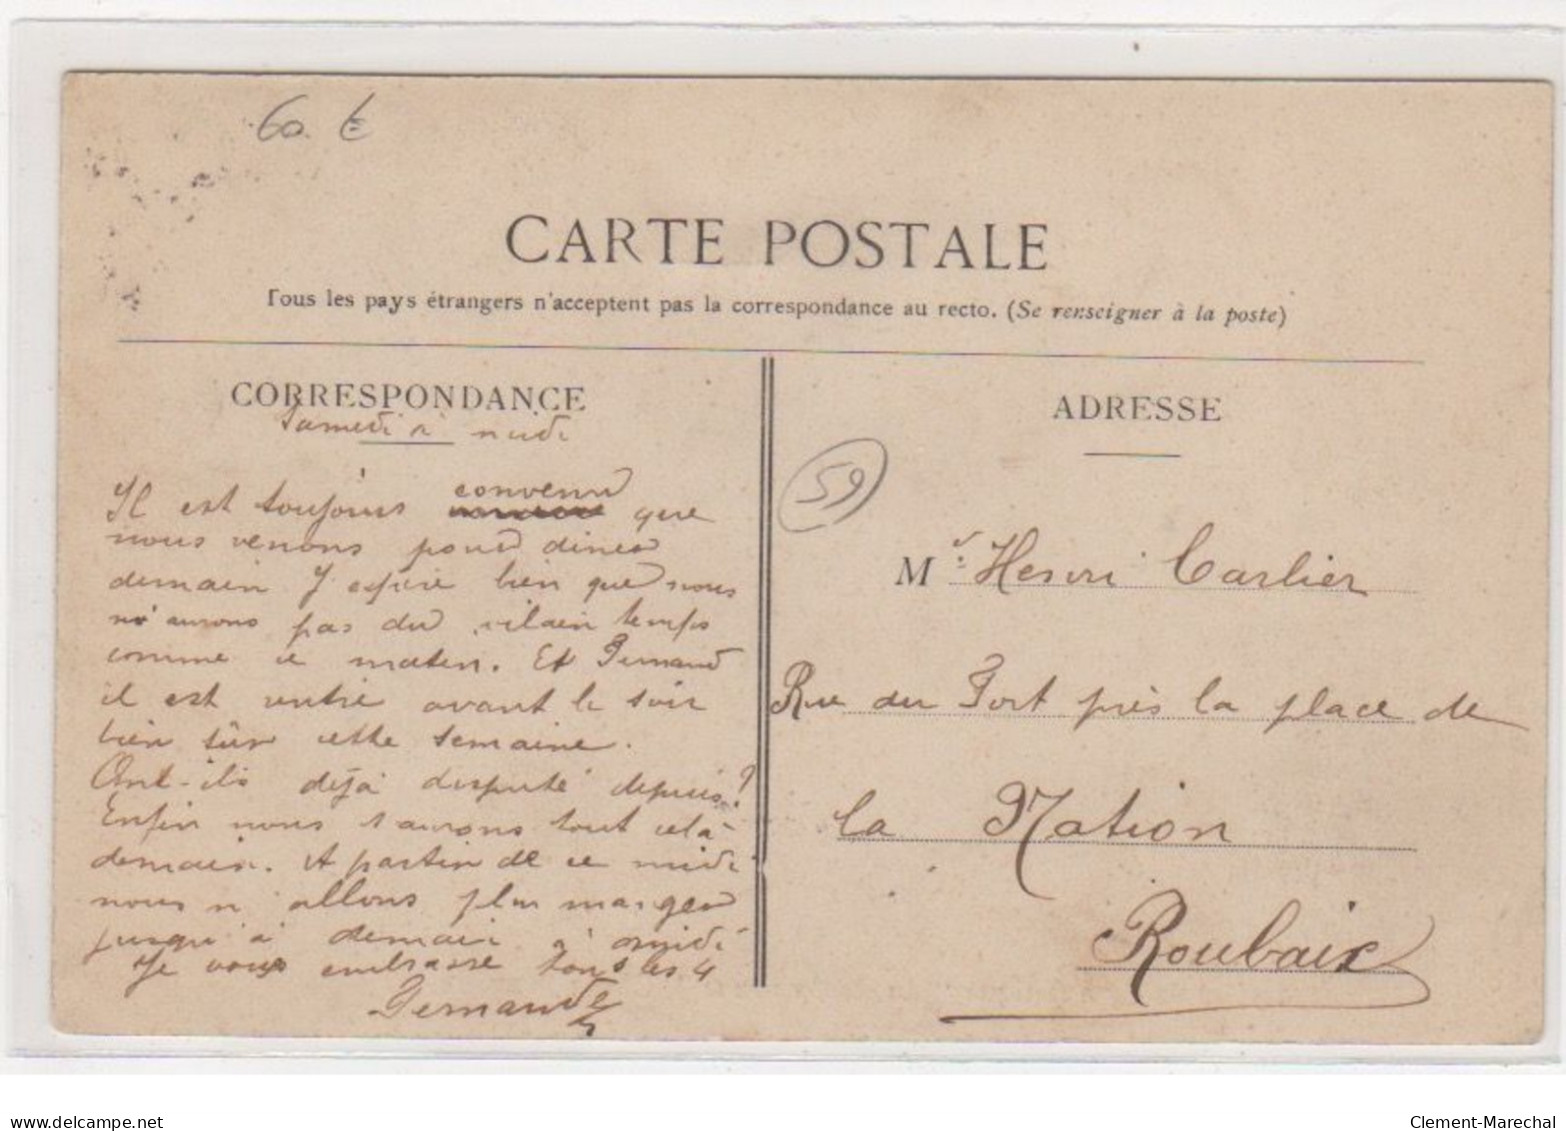 60 €
CARTE POSTALE
Tous les pays étrangers n'acceptent pas la correspondance au recto. (Se renseigner à la poste)
CORRESPONDANCE
Samedi à midi
Il est toujours convenu que
nous venons pour diner
demain J espère bien que nous
n'aurons pas du vilain temps
comme ce matin. Et Fernand
il est rentré avant le soir
bien sûr cette semaine.
Ont-ils déjà disputé depuis?
Enfin nous saurons tout cela
demain. A partir de ce midi
nous n'allons plus manger
jusqu'à demain à midi
Je vous embrasse tous les 4
Fernande
ADRESSE
59
Mr. Henri Carlier
Rue du Fort près la place de
la Nation
Roubaix
www.delcampe.net
Clement-Marechal